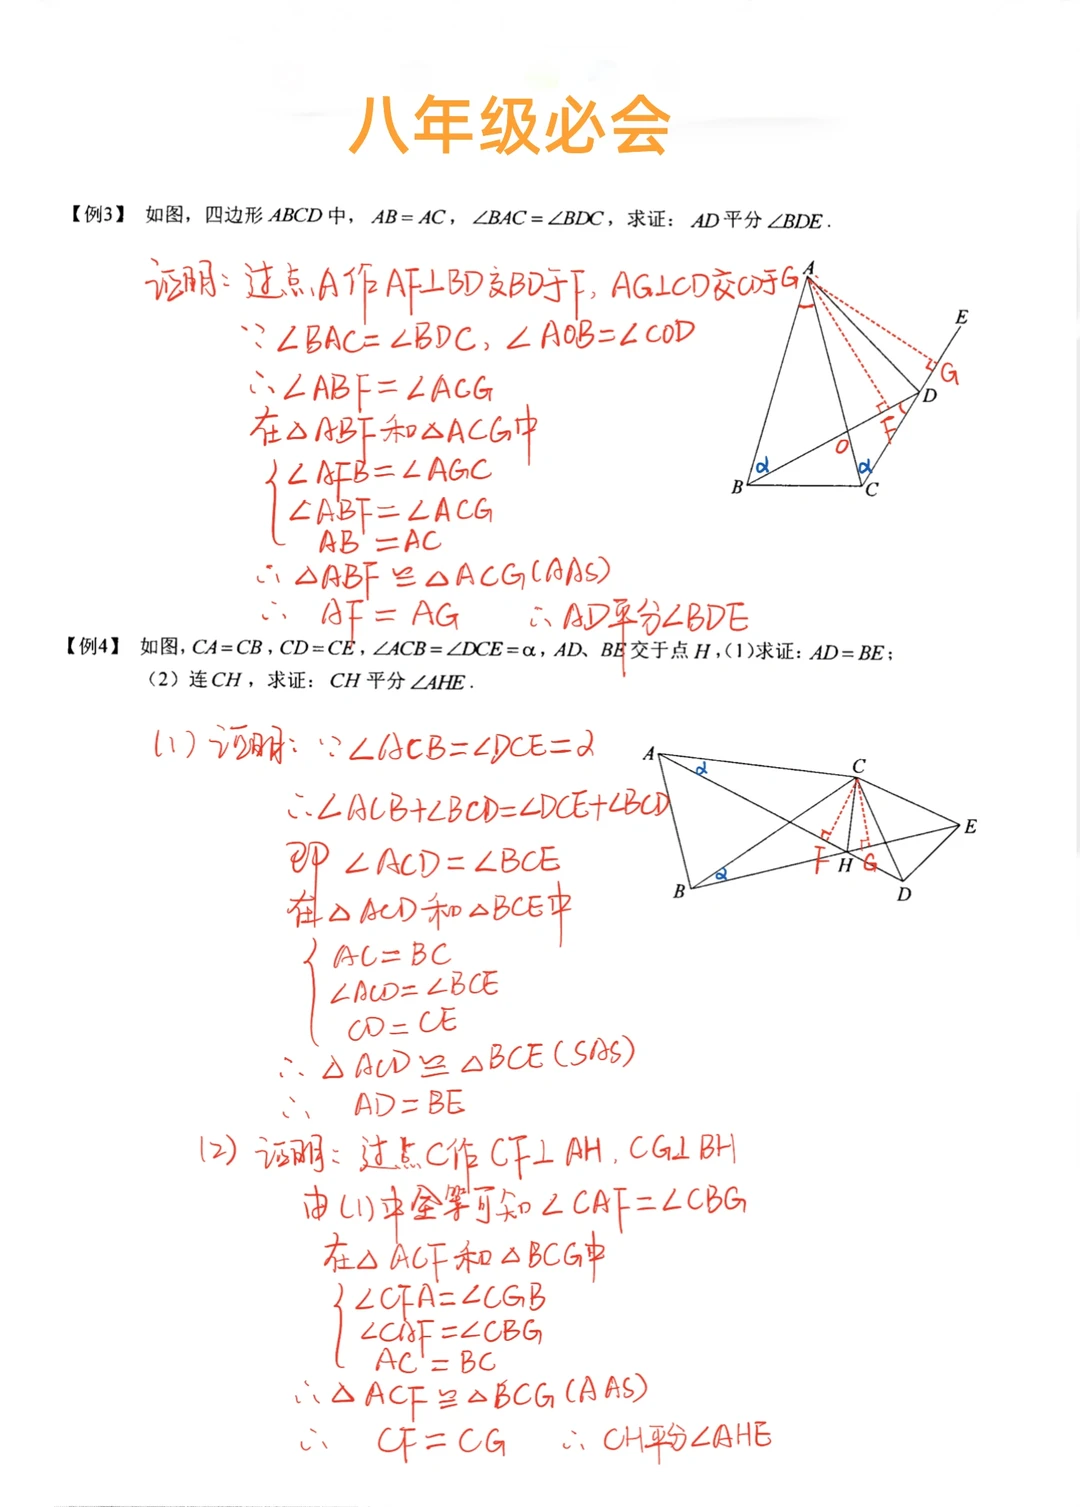 八年级必会
【例3】 如图，四边形ABCD中， AB=AC， ∠BAC=∠BDC，求证： AD平分∠BDE.
证明：过点A作AF⊥BD交BD于F，AG⊥CD交CD于G
∵∠BAC=∠BDC，∠AOB=∠COD
∴∠ABF=∠ACG
在△ABF和△ACG中
∠AFB=∠AGC
∠ABF=∠ACG
AB=AC
∴△ABF≌△ACG(AAS)
∴ AF=AG ∴AD平分∠BDE
A
E
G
D
F
O
α
α
B
C
【例4】 如图，CA=CB，CD=CE，∠ACB=∠DCE=α，AD、BE交于点H，(1)求证：AD=BE；
（2）连CH，求证：CH平分∠AHE.
(1) 证明：∵∠ACB=∠DCE=α
∴∠ACB+∠BCD=∠DCE+∠BCD
即∠ACD=∠BCE
在△ACD和△BCE中
AC=BC
∠ACD=∠BCE
CD=CE
∴△ACD≌△BCE(SAS)
∴ AD=BE
A
α
C
E
F
H
G
α
B
D
(2) 证明：过点C作CF⊥AH，CG⊥BH
由(1)中全等可知∠CAF=∠CBG
在△ACF和△BCG中
∠CFA=∠CGB
∠CAF=∠CBG
AC=BC
∴△ACF≌△BCG(AAS)
∴ CF=CG ∴CH平分∠AHE